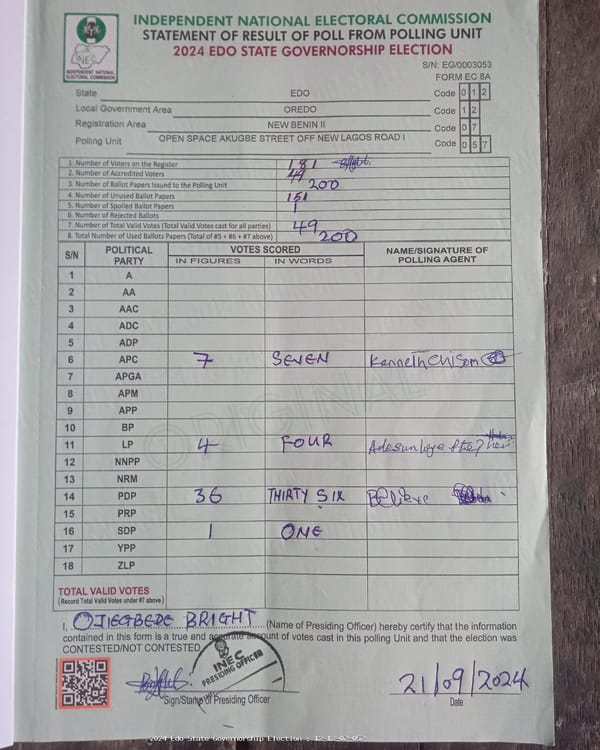 INDEPENDENT NATIONAL ELECTORAL COMMISSION
STATEMENT OF RESULT OF POLL FROM POLLING UNIT
2024 EDO STATE GOVERNORSHIP ELECTION
INEC
INDEPENDENT NATIONAL ELECTORAL COMMISSION
S/N: EG/0003053
FORM EC 8A
State EDO Code 0 1 2
Local Government Area OREDO Code 1 2
Registration Area NEW BENIN II Code 0 7
Polling Unit OPEN SPACE AKUGBE STREET OFF NEW LAGOS ROAD I Code 0 5 7
1. Number of Voters on the Register 181
2. Number of Accredited Voters 49
3. Number of Ballot Papers Issued to the Polling Unit 200
4. Number of Unused Ballot Papers 151
5. Number of Spoiled Ballot Papers 1
6. Number of Rejected Ballots
7. Number of Total Valid Votes (Total Valid Votes cast for all parties) 49
8. Total Number of Used Ballots Papers (Total of #5 + #6 + #7 above) 200
S/N POLITICAL PARTY VOTES SCORED NAME/SIGNATURE OF POLLING AGENT
IN FIGURES IN WORDS
1 A
2 AA
3 AAC
4 ADC
5 ADP
6 APC 7 SEVEN Kenneth Chisom
7 APGA
8 APM
9 APP
10 BP
11 LP 4 FOUR
12 NNPP
13 NRM
14 PDP 36 THIRTY SIX Believe
15 PRP
16 SDP 1 ONE
17 YPP
18 ZLP
ORIGINAL
TOTAL VALID VOTES
(Record Total Valid Votes under #7 above)
I, OJIEGBEDE BRIGHT (Name of Presiding Officer) hereby certify that the information
contained in this form is a true and accurate account of votes cast in this polling Unit and that the election was
CONTESTED/NOT CONTESTED
INEC
PRESIDING OFFICER
21/09/2024
Sign/Stamp of Presiding Officer
Date
2024 Edo State Governorship Election